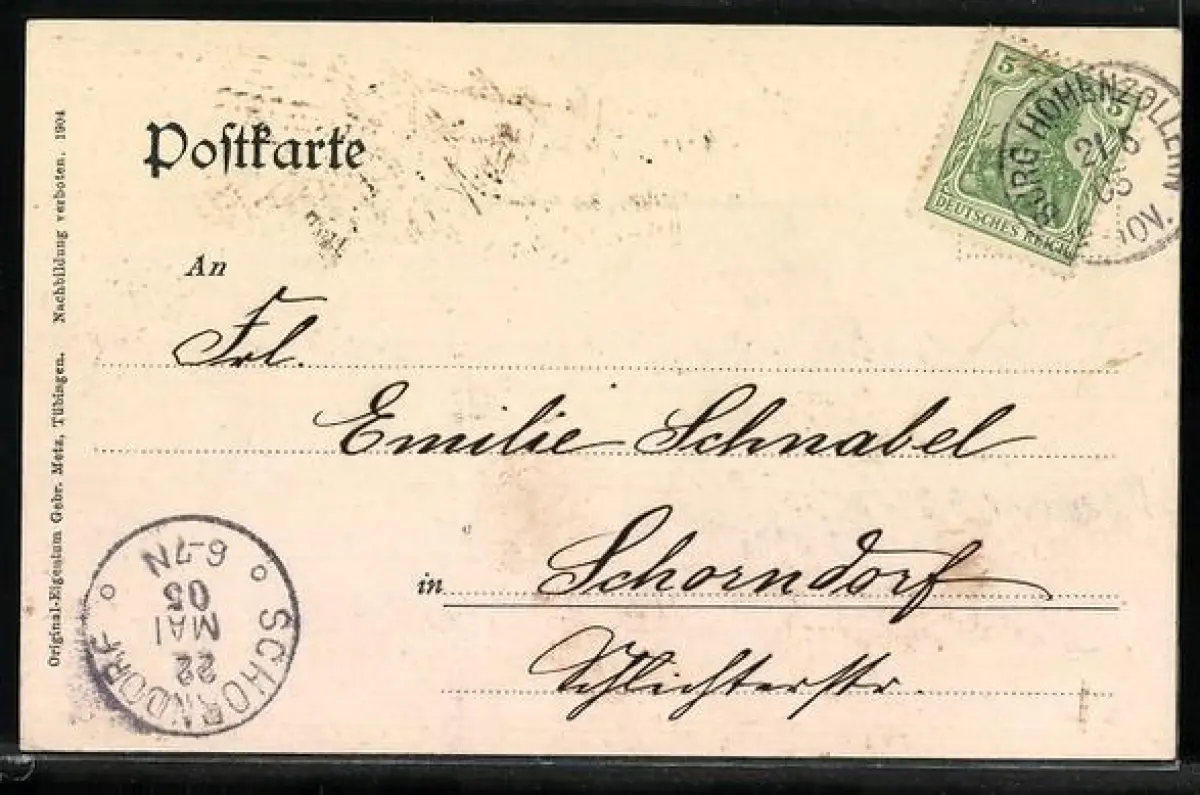 Postkarte
5 5
DEUTSCHES REICH
BURG HOHENZOLLERN
21/5
05
An
Frl.
Emilie Schnabel
in Schorndorf
Schlichterstr.
SCHORNDORF
22
MAI
05
6-7N
Original-Eigentum Gebr. Metz, Tübingen. Nachbildung verboten. 1904